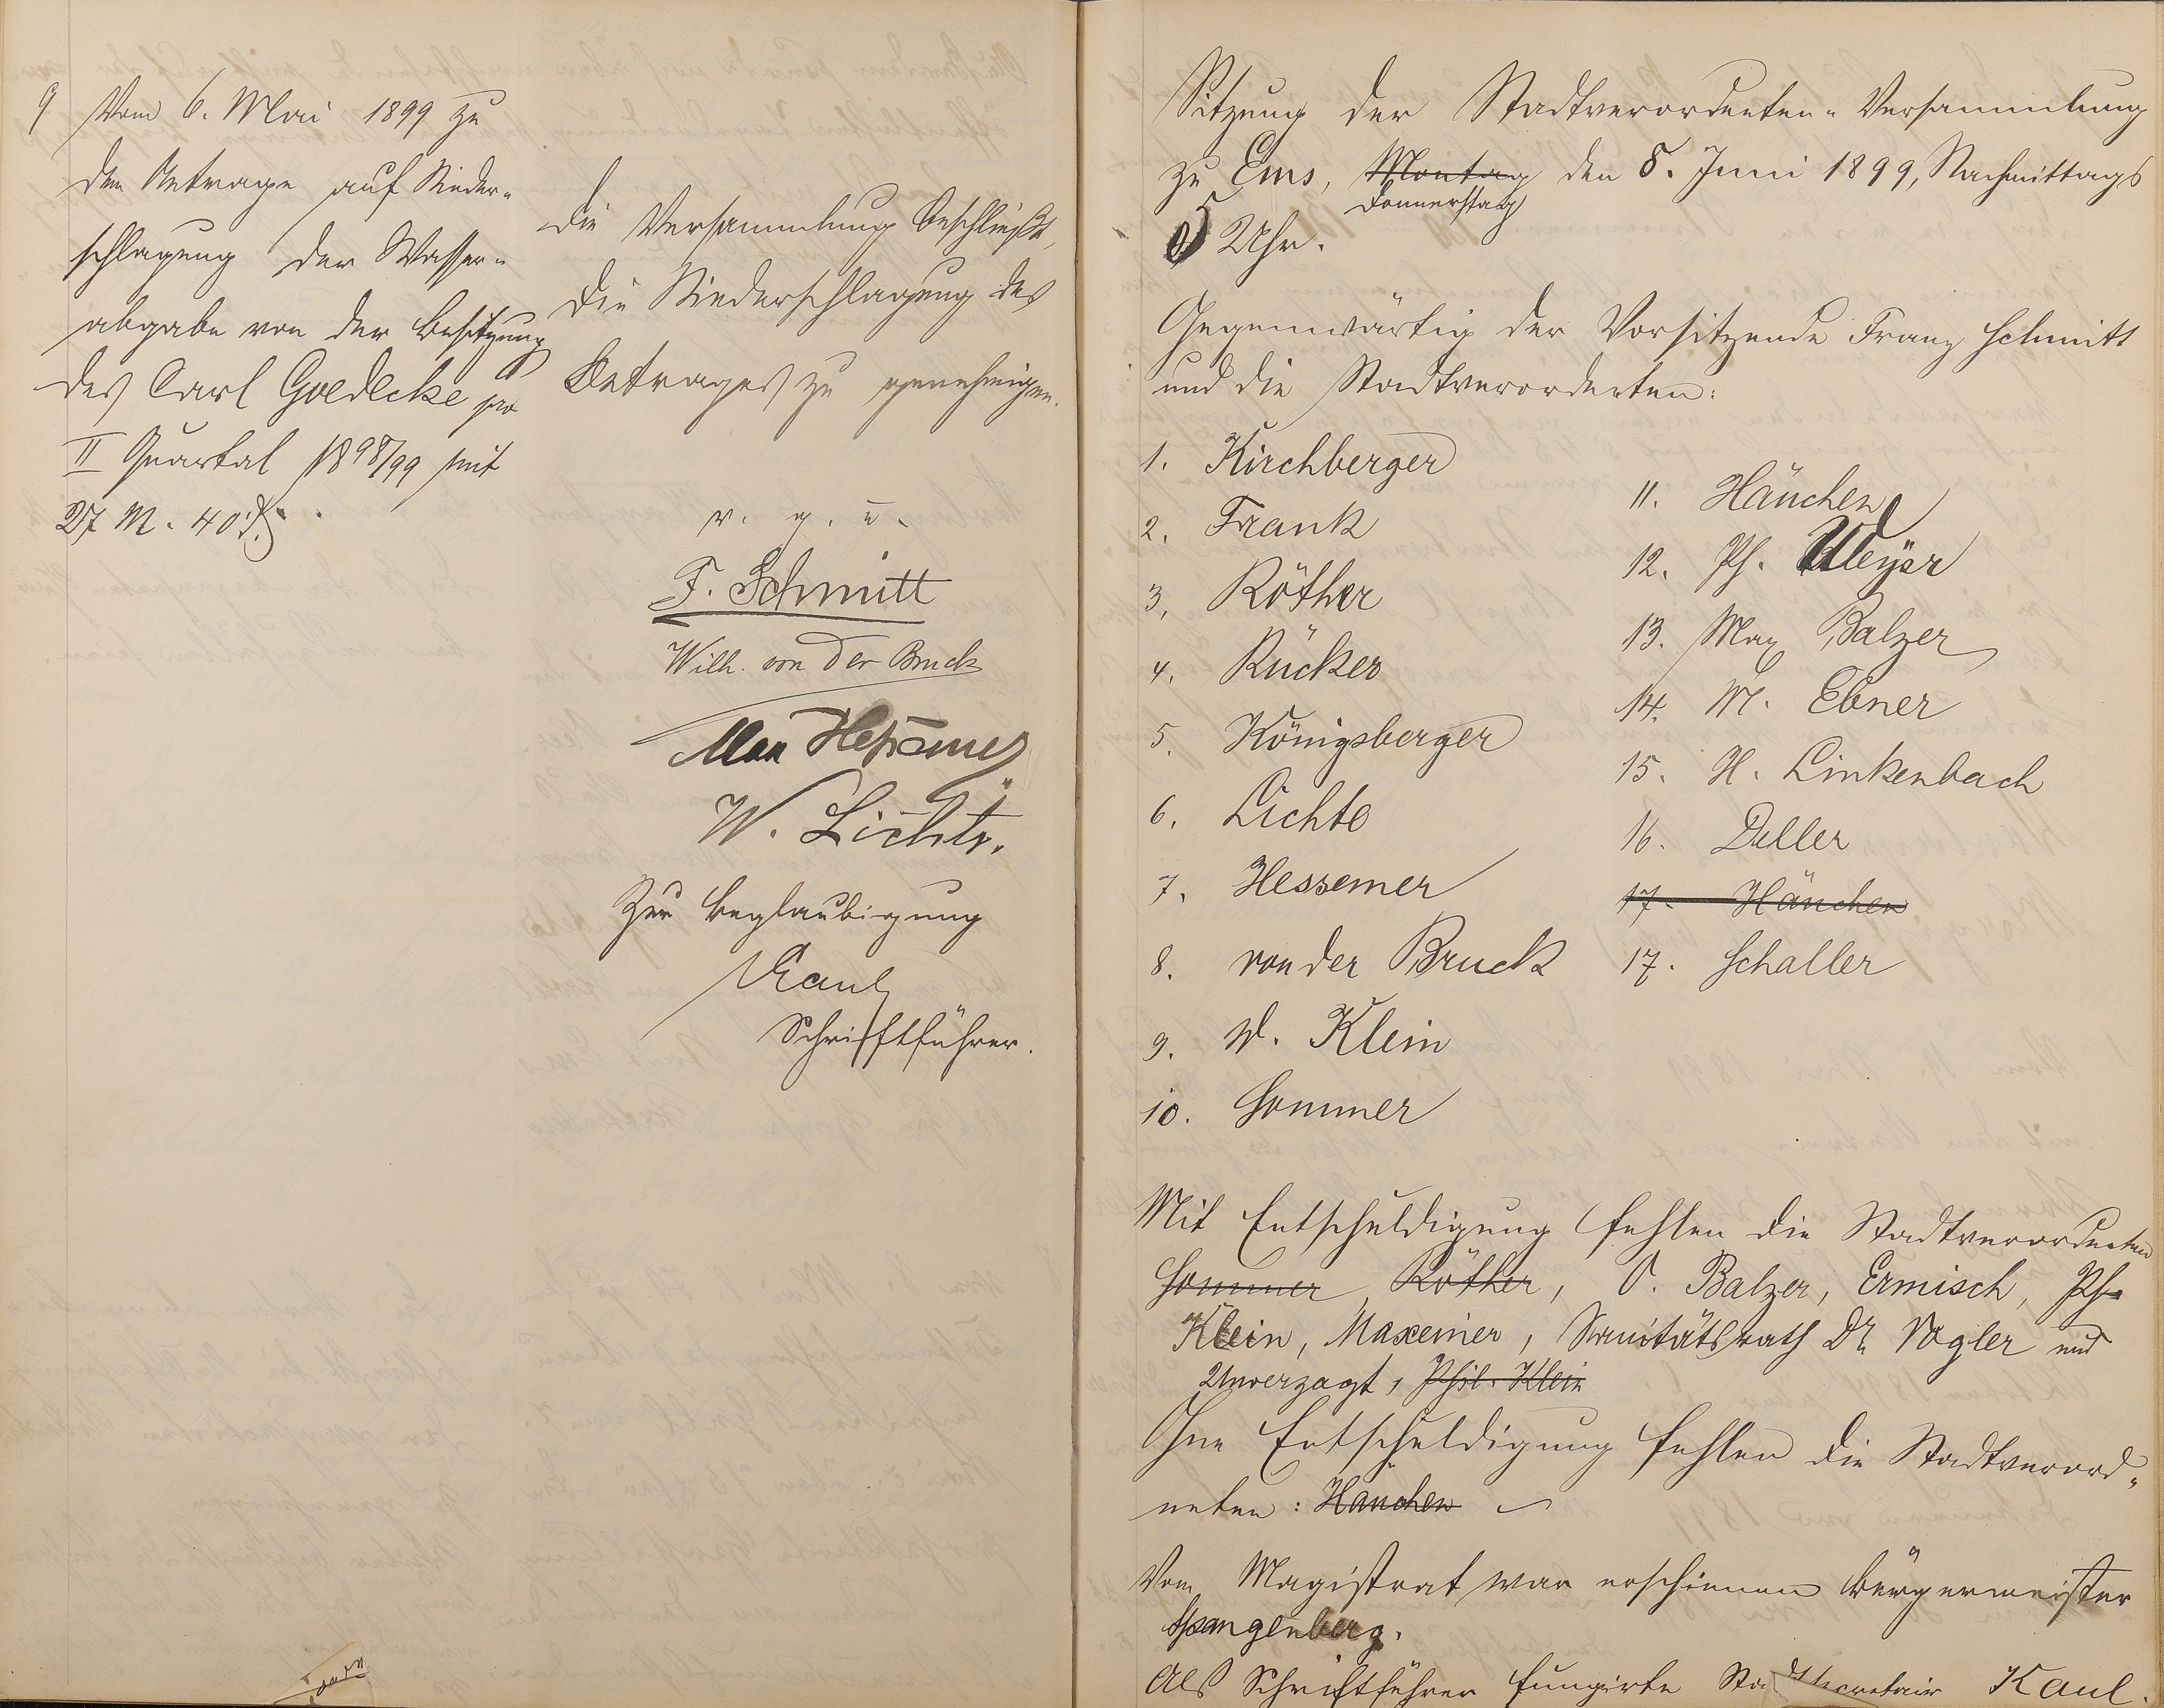 9 Vom 6. Mai 1899 zu
dem Antrage auf Nieder-
schlagung der Wasser-
abgabe von der Besitzung
des Carl Goedecke pro
II Quartal 1898/99 mit
27 M. 40 ₰.
Die Versammlung beschließt,
die Niederschlagung des
Betrages zu genehmigen.
v. g. u.
F. Schmitt
Wilh. von der Bruck
Max Hessemer
W. Lichte.
Zur Beglaubigung
Kaul
Schriftführer.
Sitzung der Stadtverordneten-Versammlung
zu Ems, Montag den 8. Juni 1899, Nachmittags
Donnerstag
5 Uhr.
Gegenwärtig der Vorsitzende Franz Schmitt
und die Stadtverordneten:
1. Kirchberger
2. Frank
3. Röther
4. Rücker
5. Königsberger
6. Lichte
7. Hessemer
8. von der Bruck
9. W. Klein
10. Sommer
11. Hänchen
12. Ph.
13. Max Balzer
14. M. Ebner
15. H. Linkenbach
16. Deller
17. Hänchen
17. Schaller
Mit Entschuldigung fehlen die Stadtverordneten
Sommer, Röther, O. Balzer, Ermisch, Ph.
Klein, Maxeiner, Sanitätsrath Dr. Vogler und
Unverzagt, Phil. Klein
Ohne Entschuldigung fehlen die Stadtverord-
neten: Hänchen
Vom Magistrat war erschienen Bürgermeister
Spangenberg.
Als Schriftführer fungirte Stadtsecretair Kaul.